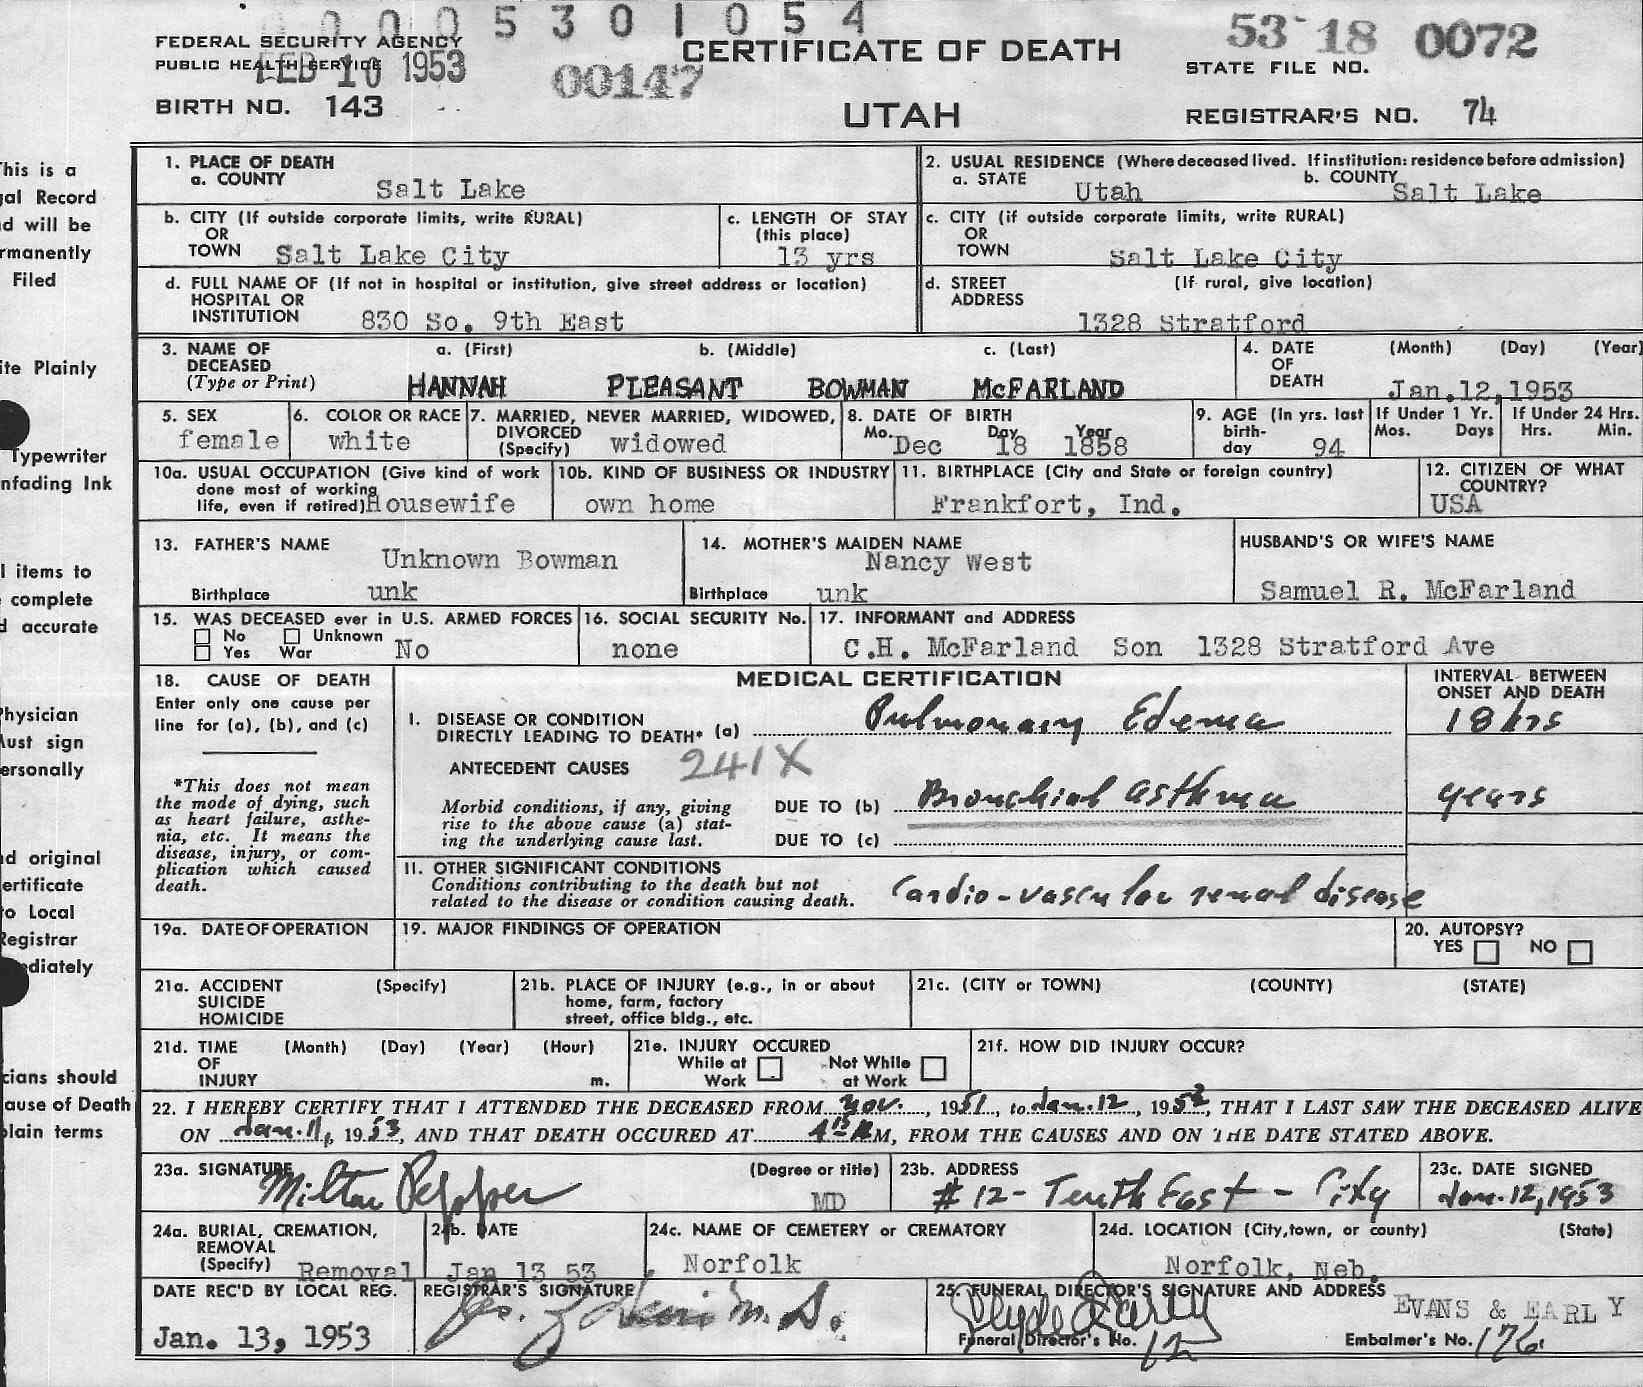 0 0 0 5 3 0 1 0 5 4
FEDERAL SECURITY AGENCY
PUBLIC HEALTH SERVICE
FEB 10 1953
BIRTH NO. 143
00147
CERTIFICATE OF DEATH
UTAH
53-18 0072
STATE FILE NO.
REGISTRAR'S NO. 74
This is a
gal Record
d will be
rmanently
Filed
ite Plainly
Typewriter
nfading Ink
l items to
complete
d accurate
Physician
Must sign
ersonally
nd original
ertificate
to Local
Registrar
ediately
cians should
ause of Death
plain terms
1. PLACE OF DEATH
a. COUNTY Salt Lake
2. USUAL RESIDENCE (Where deceased lived. If institution: residence before admission)
a. STATE Utah b. COUNTY Salt Lake
b. CITY (If outside corporate limits, write RURAL)
OR
TOWN Salt Lake City
c. LENGTH OF STAY
(this place)
13 yrs
c. CITY (if outside corporate limits, write RURAL)
OR
TOWN Salt Lake City
d. FULL NAME OF (If not in hospital or institution, give street address or location)
HOSPITAL OR
INSTITUTION 830 So. 9th East
d. STREET (If rural, give location)
ADDRESS
1328 Stratford
3. NAME OF DECEASED
(Type or Print)
a. (First) b. (Middle) c. (Last)
HANNAH PLEASANT BOWMAN McFARLAND
4. DATE OF DEATH (Month) (Day) (Year)
Jan.12,1953
5. SEX
female
6. COLOR OR RACE
white
7. MARRIED, NEVER MARRIED, WIDOWED,
DIVORCED
(Specify) widowed
8. DATE OF BIRTH
Mo. Day Year
Dec 18 1858
9. AGE (In yrs. last
birth-
day 94
If Under 1 Yr.
Mos. Days
If Under 24 Hrs.
Hrs. Min.
10a. USUAL OCCUPATION (Give kind of work
done most of working
life, even if retired) Housewife
10b. KIND OF BUSINESS OR INDUSTRY
own home
11. BIRTHPLACE (City and State or foreign country)
Frankfort, Ind.
12. CITIZEN OF WHAT
COUNTRY?
USA
13. FATHER'S NAME
Unknown Bowman
Birthplace unk
14. MOTHER'S MAIDEN NAME
Nancy West
Birthplace unk
HUSBAND'S OR WIFE'S NAME
Samuel R. McFarland
15. WAS DECEASED ever in U.S. ARMED FORCES
No Unknown
Yes War No
16. SOCIAL SECURITY No.
none
17. INFORMANT and ADDRESS
C.H. McFarland Son 1328 Stratford Ave
18. CAUSE OF DEATH
Enter only one cause per
line for (a), (b), and (c)
*This does not mean
the mode of dying, such
as heart failure, asthe-
nia, etc. It means the
disease, injury, or com-
plication which caused
death.
MEDICAL CERTIFICATION
INTERVAL BETWEEN
ONSET AND DEATH
I. DISEASE OR CONDITION
DIRECTLY LEADING TO DEATH* (a) Pulmonary Edema 18 hrs
ANTECEDENT CAUSES 241X
Morbid conditions, if any, giving
rise to the above cause (a) stat-
ing the underlying cause last.
DUE TO (b) Bronchial asthma years
DUE TO (c)
II. OTHER SIGNIFICANT CONDITIONS
Conditions contributing to the death but not
related to the disease or condition causing death.
Cardio-vascular renal disease
19a. DATE OF OPERATION
19. MAJOR FINDINGS OF OPERATION
20. AUTOPSY?
YES NO
21a. ACCIDENT (Specify)
SUICIDE
HOMICIDE
21b. PLACE OF INJURY (e.g., in or about
home, farm, factory
street, office bldg., etc.
21c. (CITY or TOWN) (COUNTY) (STATE)
21d. TIME (Month) (Day) (Year) (Hour)
OF
INJURY m.
21e. INJURY OCCURED
While at Work
Not While at Work
21f. HOW DID INJURY OCCUR?
22. I HEREBY CERTIFY THAT I ATTENDED THE DECEASED FROM Nov., 1951, to Jan. 12, 1953, THAT I LAST SAW THE DECEASED ALIVE
ON Jan. 11, 1953, AND THAT DEATH OCCURED AT 4 15 AM, FROM THE CAUSES AND ON THE DATE STATED ABOVE.
23a. SIGNATURE (Degree or title)
Milton Pepper MD
23b. ADDRESS
#12 - Tenth East - City
23c. DATE SIGNED
Jan. 12, 1953
24a. BURIAL, CREMATION,
REMOVAL
(Specify) Removal
24b. DATE
Jan 13 53
24c. NAME OF CEMETERY or CREMATORY
Norfolk
24d. LOCATION (City, town, or county) (State)
Norfolk, Neb.
DATE REC'D BY LOCAL REG.
Jan. 13, 1953
REGISTRAR'S SIGNATURE
M.D.
25. FUNERAL DIRECTOR'S SIGNATURE AND ADDRESS
Clyde Early
EVANS & EARLY
Funeral Director's No. 12
Embalmer's No. 176